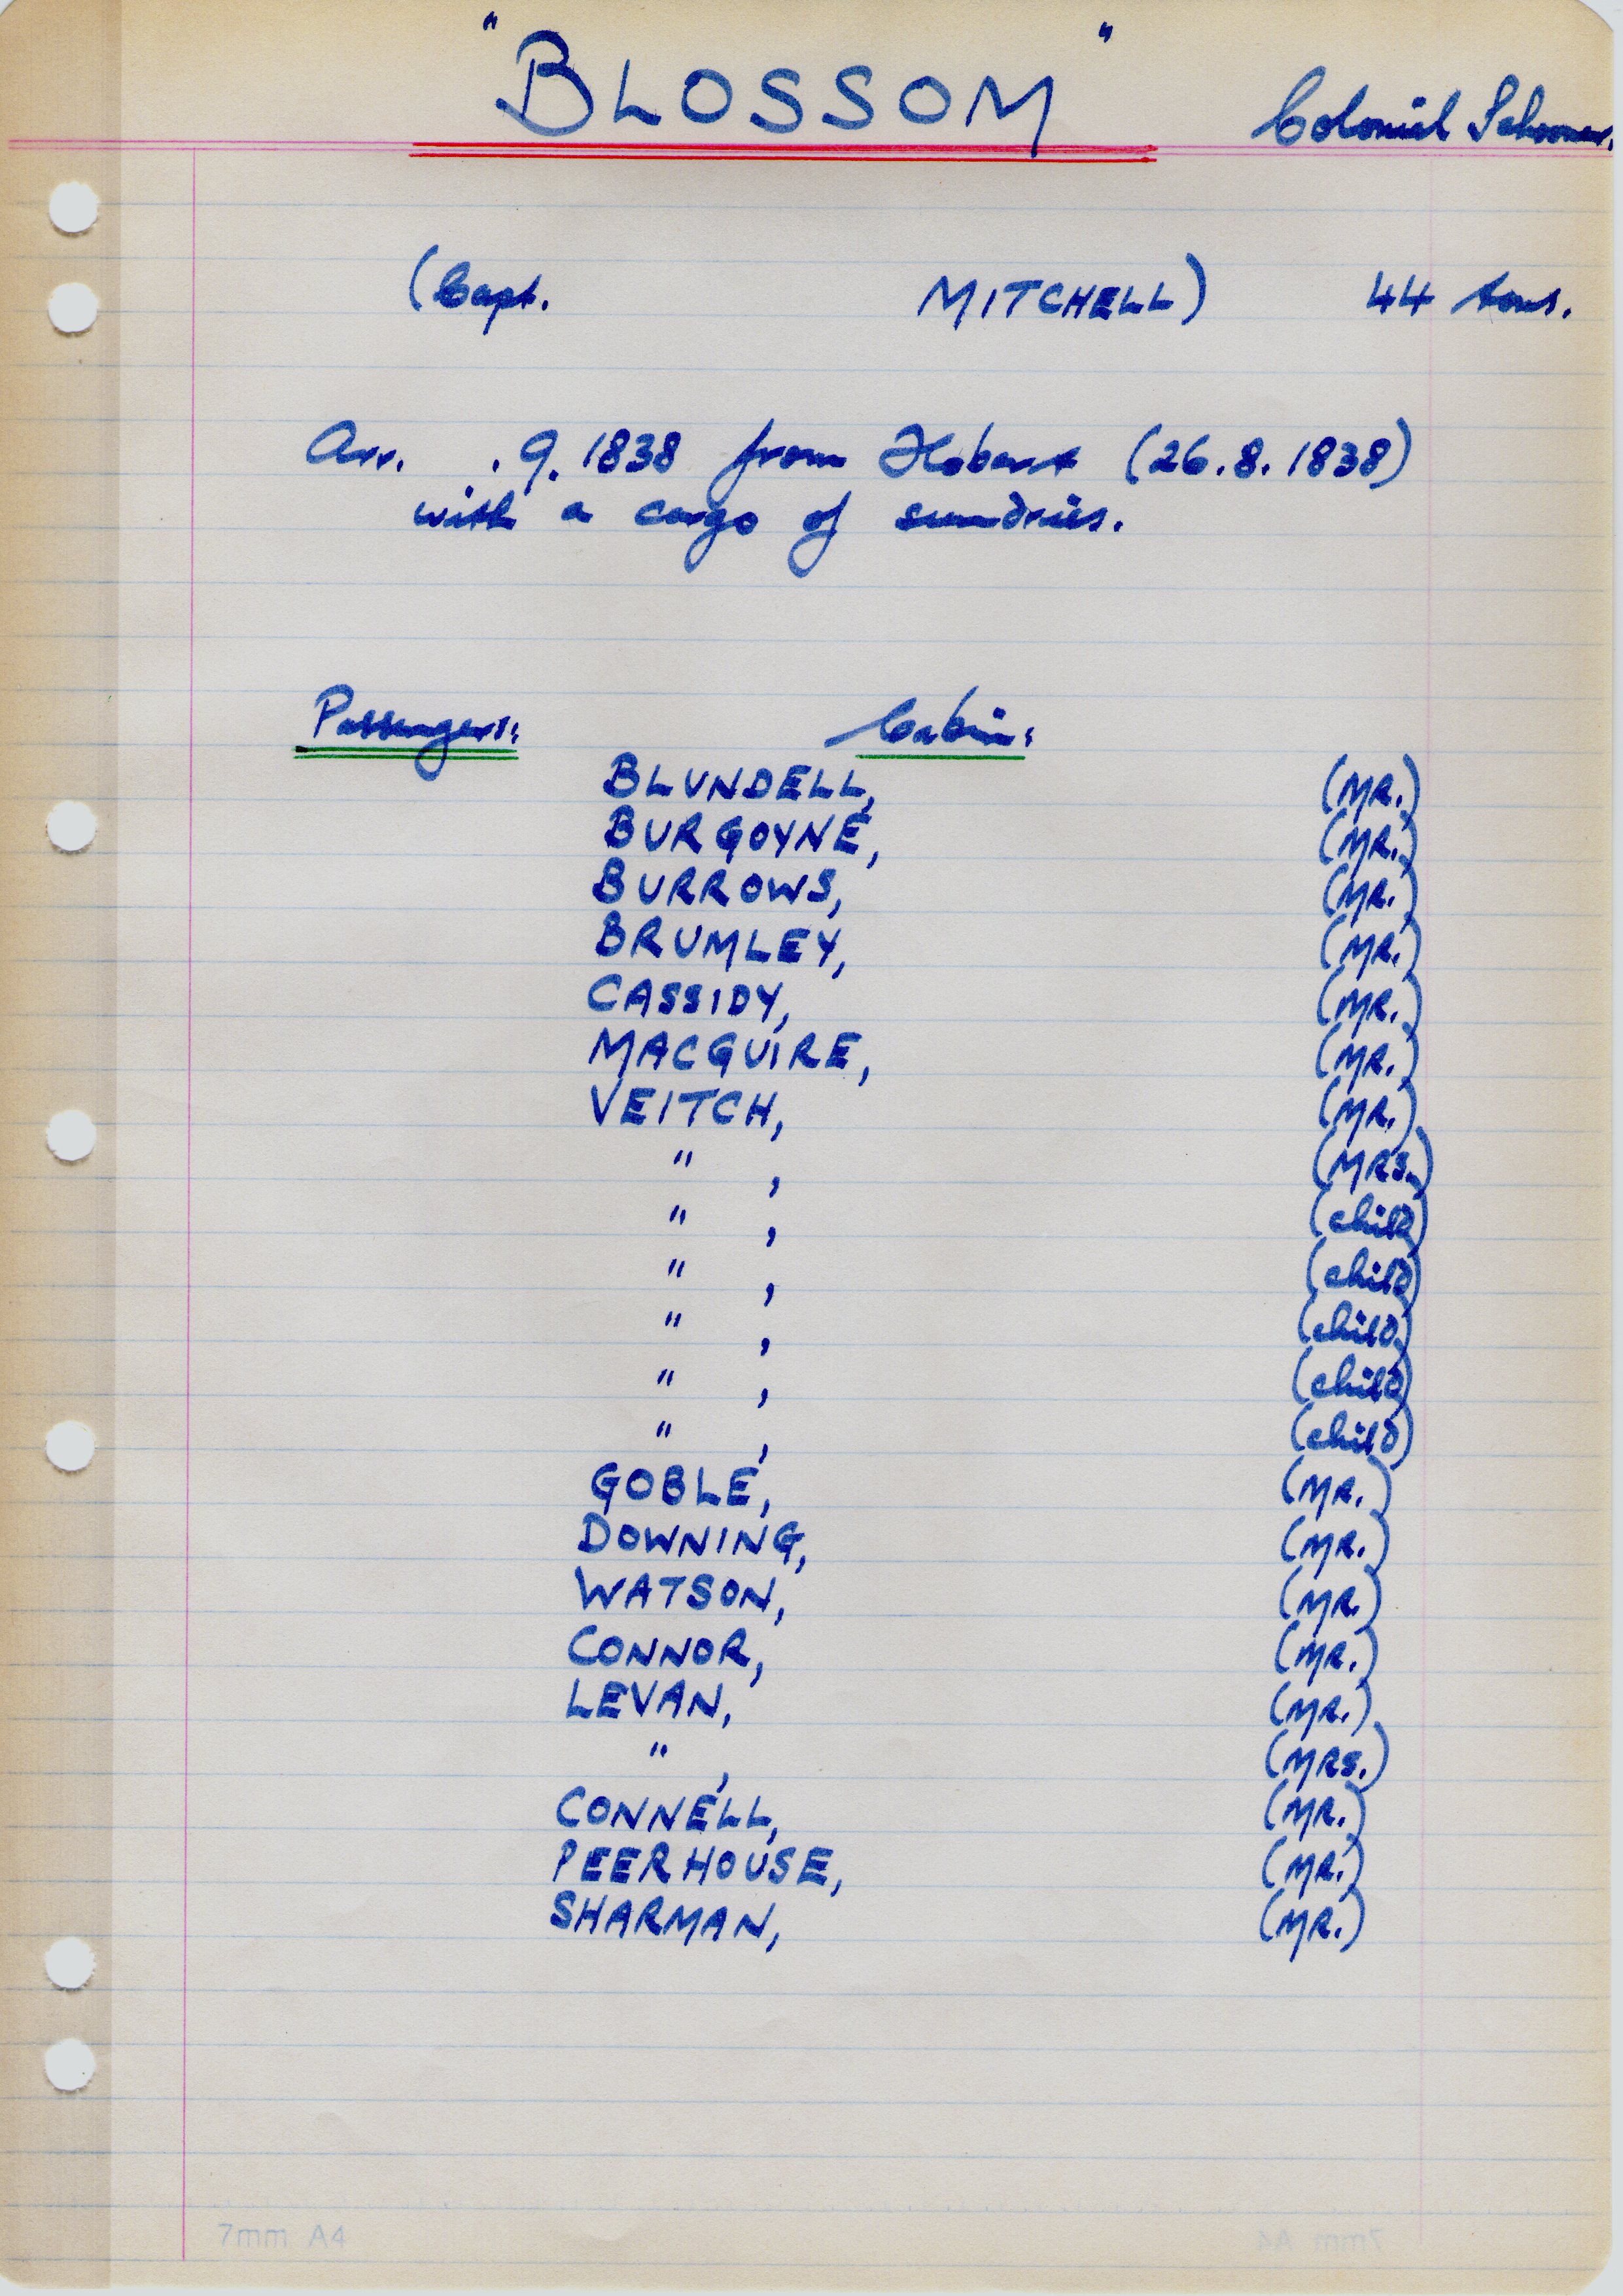 "BLOSSOM" Colonial Schooner.
(Capt. MITCHELL) 44 tons.
Arr. .9.1838 from Hobart (26.8.1838)
with a cargo of sundries.
Passengers: Cabin:
BLUNDELL, (MR.)
BURGOYNE, (MR.)
BURROWS, (MR.)
BRUMLEY, (MR.)
CASSIDY, (MR.)
MACGUIRE, (MR.)
VEITCH, (MR.)
" , (MRS.)
" , (child)
" , (child)
" , (child)
" , (child)
" , (child)
GOBLE, (MR.)
DOWNING, (MR.)
WATSON, (MR.)
CONNOR, (MR.)
LEVAN, (MR.)
" , (MRS.)
CONNELL, (MR.)
PEERHOUSE, (MR.)
SHARMAN, (MR.)
7mm A4 7mm A4